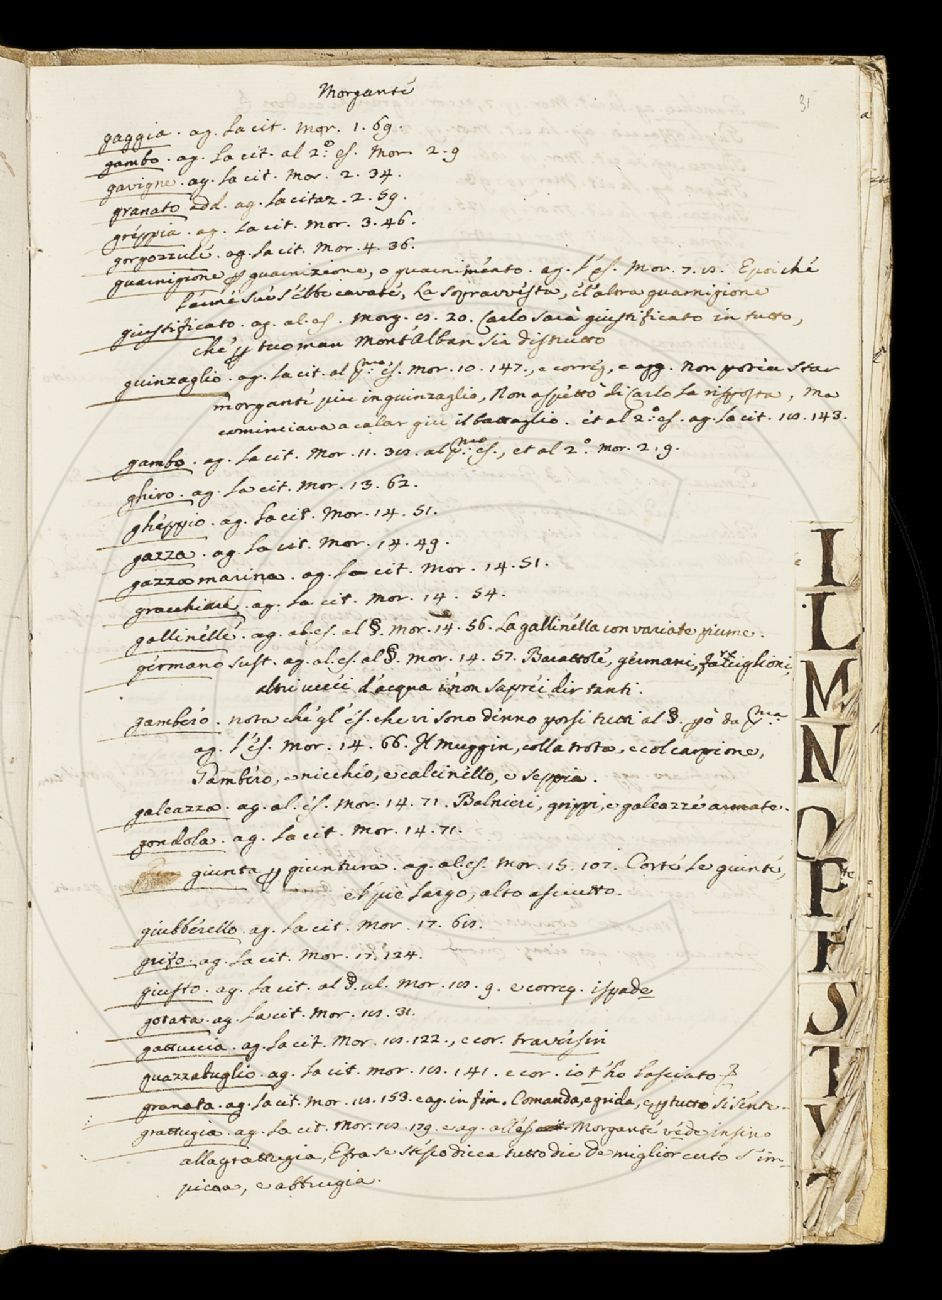 Morgante
31
gaggia. ag. la cit. Mor. 1. 69.
gambo. ag. la cit. al 2.º es. Mor. 2. 9
gavigne. ag. la cit. Mor. 2. 34.
granato add. ag. la citaz. 2. 59.
greppia. ag. la cit. Mor. 3. 46.
gorgozzule. ag. la cit. Mor. 4. 36.
guarnigione guarnizione, o guarnimento. ag. l'es. Mor. 7. E poi che
l'arme sue s'ebbe cavate, La sopravvesta, e l'altra guarnigione
giustificato. ag. al. es. Morg. 20. Carlo sarà giustificato in tutto,
che tuo man Mont'Alban sia distrutto
guinzaglio. ag. la cit. al es. Mor. 10. 147., e correg, e agg. Non poria star
morgante più in guinzaglio, Non aspettò di Carlo la risposta, Ma
cominciava a calar giù il battaglio. et al 2.º es. ag. la cit. 143.
gambo. ag. la cit. Mor. 11. al es., et al 2.º mor. 2. 9.
ghiro. ag. la cit. Mor. 13. 62.
gheppio. ag. la cit. Mor. 14. 51.
gazza. ag. la cit. Mor. 14. 49.
gazza marina. ag. la cit. Mor. 14. 51.
gracchiare. ag. la cit. Mor. 14. 54.
gallinelle. ag. al. es. al §. Mor. 14. 56. La gallinella con variate piume.
germano sust. ag. al. es. al §. Mor. 14. 57. Barattole, germani, farciglioni,
altri uccei d'acqua i' non saprei dir tanti.
gambero. nota che gl'es. che vi sono denno porsi tutti al §. pò da
ag. l'es. Mor. 14. 66. Il muggin, colla trota, e col carpione,
Gambero, e nicchio, e calcinello, e seppia.
galeazza. ag. al. es. Mor. 14. 71. Balnieri, grippi, e galeazze armate.
gondola. ag. la cit. Mor. 14. 71.
giunta giuntura. ag. al es. Mor. 15. 107. Corte le giunte,
e 'l piè largo, alto asciutto.
giubberello. ag. la cit. Mor. 17.
grifo. ag. la cit. Mor. 17. 124.
giusto. ag. la cit. al §. ul. Mor. 9. e correg. ispade
gotata. ag. la cit. Mor. 31.
gattuccia. ag. la cit. Mor. 122., e cor. traversin
guazzabuglio. ag. la cit. mor. 141. e cor. io t'ho lasciato
granata. ag. la cit. Mor. 153. e ag. in fin. Comanda, e grida, e tutto si sente.
grattugia. ag. la cit. Mor. 129. e ag. all es. Morgante vede insino
alla grattugia, E fra se stesso dicea tutto die De miglior certo s'im-
picca, e abbrugia.
I
L
M
N
O
P
S
T
V